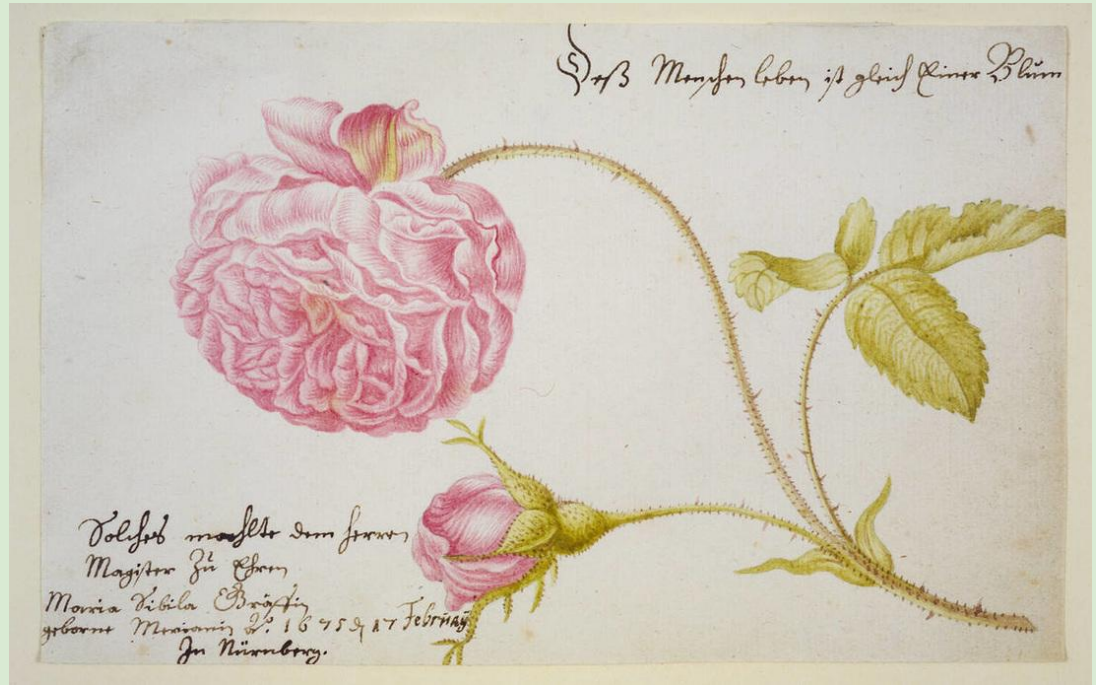 Deß Menschen leben ist gleich Einer Blum
Solches mahlte dem herren
Magister Zu Ehren
Maria Sibila Gräffin
geborne Merianin Aº. 1675 17 February
In Nürnberg.